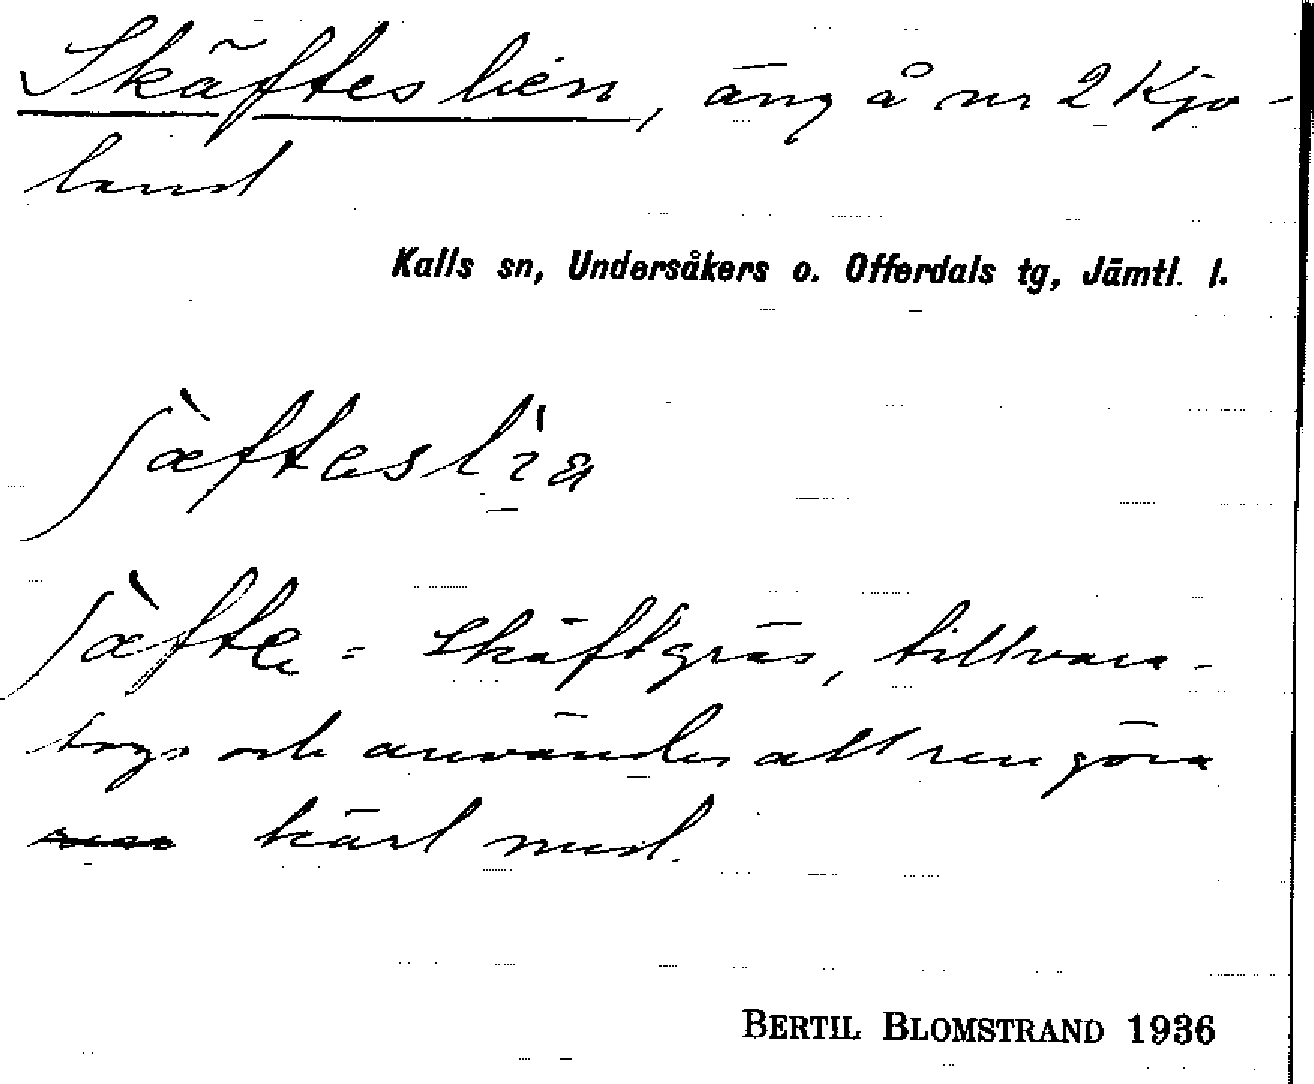 Skäfteslien, äng å nr 2 Kjo-
land
Kalls sn, Undersåkers o. Offerdals tg, Jämtl. l.
ʃæ̀fteslı̍a
ʃæ̀fte = skäftgräs, tillvara-
togs och användes att rengöra
kärl med.
BERTIL BLOMSTRAND 1936